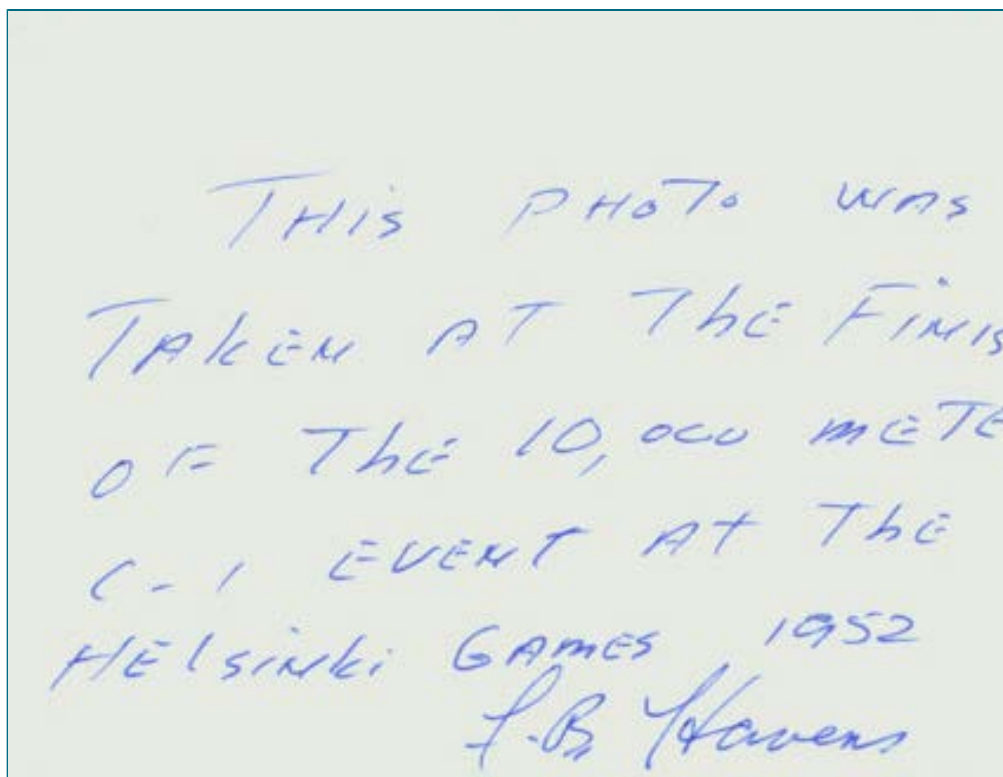 THIS PHOTO WAS
TAKEN AT THE FINIS
OF THE 10,000 METE
C-1 EVENT AT THE
HELSINKI GAMES 1952
F.B. Havens